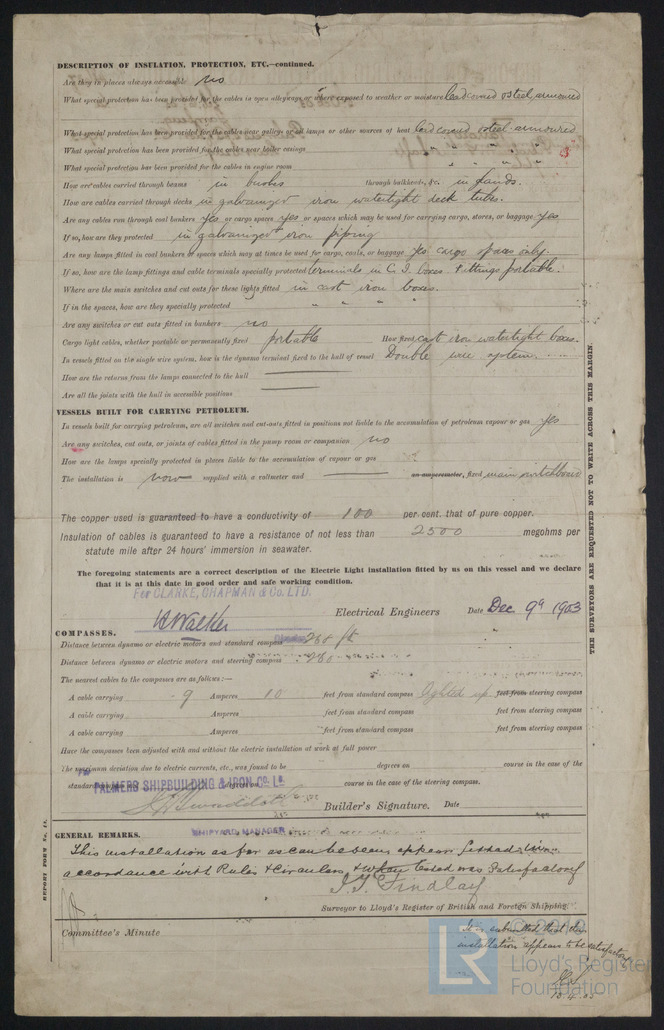 DESCRIPTION OF INSULATION, PROTECTION, ETC.—continued.
Are they in places always accessible no
What special protection has been provided for the cables in open alleyways or where exposed to weather or moisture steel armoured
What special protection has been provided for the cables near galleys or oil lamps or other sources of heat steel armoured
What special protection has been provided for the cables near boiler casings " " "
What special protection has been provided for the cables in engine room " " "
How are cables carried through beams in bushes through bulkheads, &c. in glands.
How are cables carried through decks in galvanized iron watertight deck tubes.
Are any cables run through coal bunkers yes or cargo spaces yes or spaces which may be used for carrying cargo, stores, or baggage yes
If so, how are they protected in galvanized iron piping
Are any lamps fitted in coal bunkers or spaces which may at times be used for cargo, coals, or baggage yes cargo spaces only.
If so, how are the lamp fittings and cable terminals specially protected terminals in C. I. boxes. fittings portable.
Where are the main switches and cut outs for these lights fitted in cast iron boxes.
If in the spaces, how are they specially protected " " " "
Are any switches or cut outs fitted in bunkers no
Cargo light cables, whether portable or permanently fixed portable How fixed cast iron watertight boxes.
In vessels fitted on the single wire system, how is the dynamo terminal fixed to the hull of vessel Double wire system.
How are the returns from the lamps connected to the hull
Are all the joints with the hull in accessible positions
VESSELS BUILT FOR CARRYING PETROLEUM.
In vessels built for carrying petroleum, are all switches and cut-outs fitted in positions not liable to the accumulation of petroleum vapour or gas yes
Are any switches, cut outs, or joints of cables fitted in the pump room or companion no
How are the lamps specially protected in places liable to the accumulation of vapour or gas
The installation is now supplied with a voltmeter and an amperemeter, fixed main switchboard
The copper used is guaranteed to have a conductivity of 100 per cent. that of pure copper.
Insulation of cables is guaranteed to have a resistance of not less than 2500 megohms per
statute mile after 24 hours' immersion in seawater.
The foregoing statements are a correct description of the Electric Light installation fitted by us on this vessel and we declare
that it is at this date in good order and safe working condition.
For CLARKE, CHAPMAN & Co. LTD.
Walker Electrical Engineers Date Dec 9th 1903
COMPASSES.
Distance between dynamo or electric motors and standard compass 260 ft
Distance between dynamo or electric motors and steering compass 260
The nearest cables to the compasses are as follows:—
A cable carrying 9 Amperes 10 feet from standard compass lighted up feet from steering compass
A cable carrying Amperes feet from standard compass feet from steering compass
A cable carrying Amperes feet from standard compass feet from steering compass
Have the compasses been adjusted with and without the electric installation at work at full power
The maximum deviation due to electric currents, etc., was found to be degrees on course in the case of the
standard compass and degrees on course in the case of the steering compass.
PALMERS SHIPBUILDING & IRON Co. Ld.
Builder's Signature. Date
SHIPYARD MANAGER
GENERAL REMARKS.
This installation as far as can be seen appears fitted in
accordance with Rules & Circulars & when tested was satisfactory
J. T. Findlay
Surveyor to Lloyd's Register of British and Foreign Shipping.
Committee's Minute
It is submitted that this
installation appears to be satisfactory
REPORT FORM No. 18.
THE SURVEYORS ARE REQUESTED NOT TO WRITE ACROSS THIS MARGIN.
LR
Lloyd's Register
Foundation